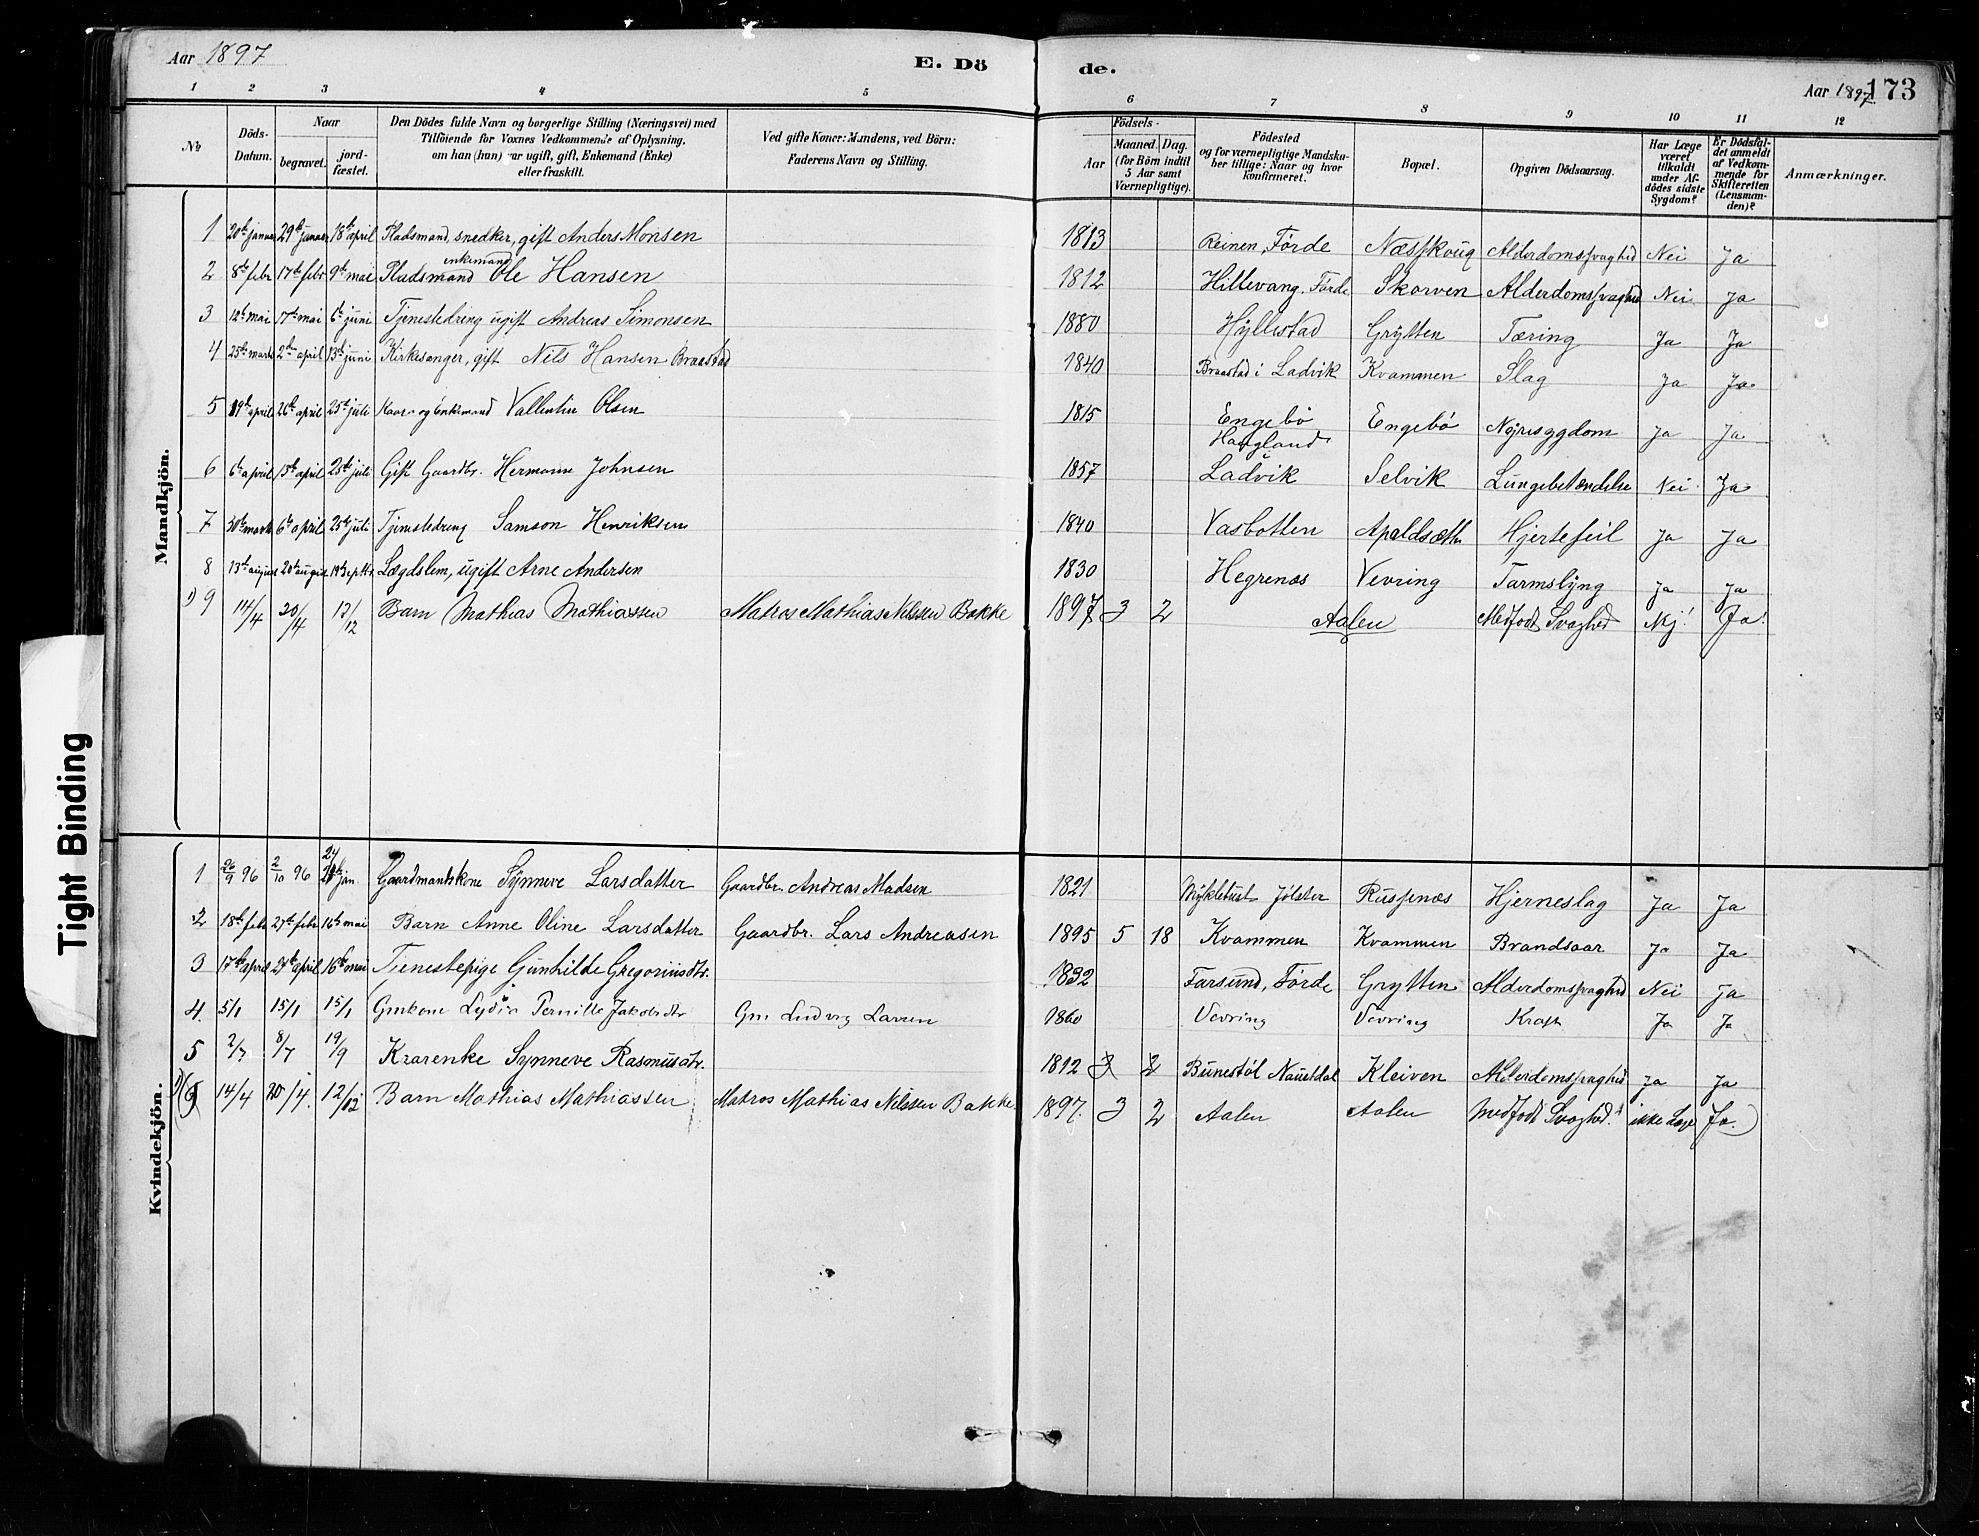 Aar 1897
E. Dö
de.
Aar 1897
173
1 2 3 4 5 6 7 8 9 10 11 12
№
Döds-Datum.
Naar
begravet.
jord-fæstet.
Den Dödes fulde Navn og borgerlige Stilling (Næringsvei) med
Tilföiende for Voxnes Vedkommende af Oplysning,
om han (hun) var ugift, gift, Enkemand (Enke)
eller fraskilt.
Ved gifte Koner: Mandens, ved Börn:
Faderens Navn og Stilling.
Födsels-
Aar
Maaned. Dag.
(for Börn indtil
5 Aar samt
Værnepligtige).
Födested
og for værnepligtige Mandska-
ber tillige: Naar og hvor
Konfirmeret.
Bopæl.
Opgiven Dödsaarsag.
Har Læge
været
tilkaldt
under Af-
dödes sidste
Sygdom?
Er Dödsfal-
det anmeldt
af Vedkom-
mende for
Skifteretten
(Lensman-
den)?
Anmærkninger.
Mandkjön.
1 20de januar 29de januar 18de april Pladsmand, snedker, gift Anders Monsen 1813 Reinen, Førde Næsskoug Alderdomssvaghed Nei Ja
2 8de febr 17de febr 9de mai Pladsmand enkemand Ole Hansen 1812 Hillevang, Førde Skorven Alderdomssvaghed Nei Ja
3 12te mai 17de mai 6te juni Tjenestedreng ugift Andreas Simonsen 1880 Hyllestad Grytten Tæring Ja Ja
4 25de marts 2den april 13de juni Kirkesanger, gift Nils Hansen Braastad 1840 Braastad i Ladvik Kvammen Slag Ja Ja
5 19de april 26de april 25de juli Kaar- og Enkemand Vallentin Olsen 1815 Engebø Engebø Nyresygdom Ja Ja
6 6te april 15de april 25de juli Gift Gaardbr. Hermann Johnsen 1857 Haugland Ladvik Selvik Lungebetændelse Nei Ja
7 30te marts 6te april 25de juli Tjenestedreng Samson Henriksen 1840 Vasbotten Apaldsætter Hjertefeil Ja Ja
8 13de august 20de august 19de septbr Lægdslem, ugift Arne Andersen 1830 Hegrenæs Vevring Tarmslyng Ja Ja
1) 9 14/4 20/4 12/12 Barn Mathias Mathiassen Matros Mathias Nilssen Bakke 1897 3 2 Aalen Medfødt Svaghed Nej! Ja!
Kvindekjön.
1 26/9 96 2/10 96 24 jan. Gaardmandskone Synneve Larsdatter Gaardbr. Andreas Madsen 1821 Mykletust Jølster Russenæs Hjerneslag Ja Ja
2 18de febr 27de febr 16de mai Barn Anne Oline Larsdatter Gaardbr. Lars Andreasen 1895 5 18 Kvammen Kvammen Brandsaar Ja Ja
3 17de april 27de april 16de mai Tjenestepige Gunhilde Gregoriusdtr. 1832 Farsund, Førde Grytten Alderdomssvaghed Nei Ja
4. 5/1 15/1 15/1 Gmkone Lydia Pernille Jakobsdtr Gm Ludvig Larsen 1860 Vevring Vevring Kræft Ja Ja
5 2/7 8/7 19/9 Kaarenke Synneve Rasmusdtr. 1812 3 2 Bunestøl Naustdal Kleiven Alderdomssvaghed Ja Ja
1) (6) 14/4 20/4. 12/12 Barn Mathias Mathiassen Matros Mathias Nilssen Bakke. 1897. 3 2 Aalen Aalen Medfødt Svaghed. ikke Læge Ja.)
Tight Binding